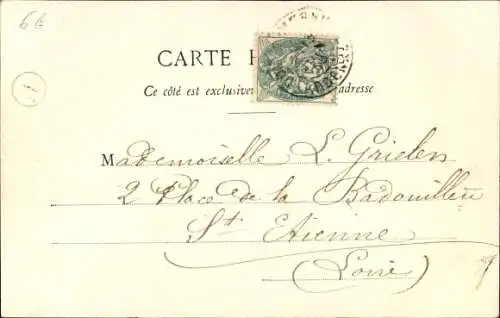 6€
CARTE P
Ce côté est exclusive adresse
1
Mademoiselle L.
2 Place de la Badouillère
St Etienne
(Loire)